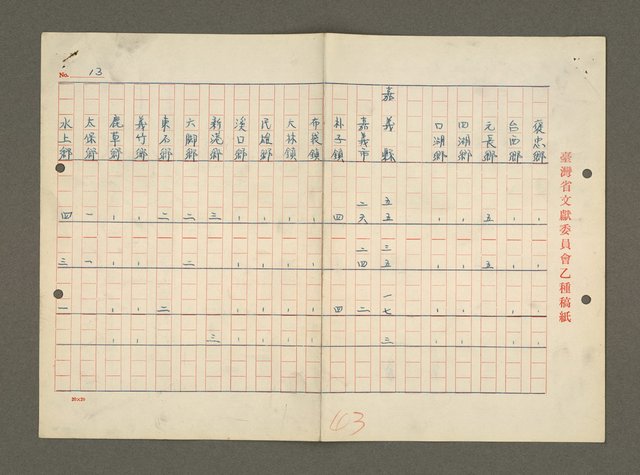 臺灣省文獻委員會乙種稿紙
No. 13
褒忠鄉 、 、 、
台西鄉 、 、 、
元長鄉 五 五 、
四湖鄉 、 、 、
口湖鄉 、 、 、
嘉義縣 五五 三五 一七 三
嘉義市 二六 二四 二 、
朴子鎮 四 、 四 、
布袋鎮 、 、 、 、
大林鎮 、 、 、 、
民雄鄉 、 、 、 、
溪口鄉 、 、 、 、
新港鄉 三 、 、 三
六腳鄉 二 二 、 、
東石鄉 二 、 二 、
義竹鄉 、 、 、 、
鹿草鄉 、 、 、 、
太保鄉 一 一 、
水上鄉 四 三 一
20×20
43